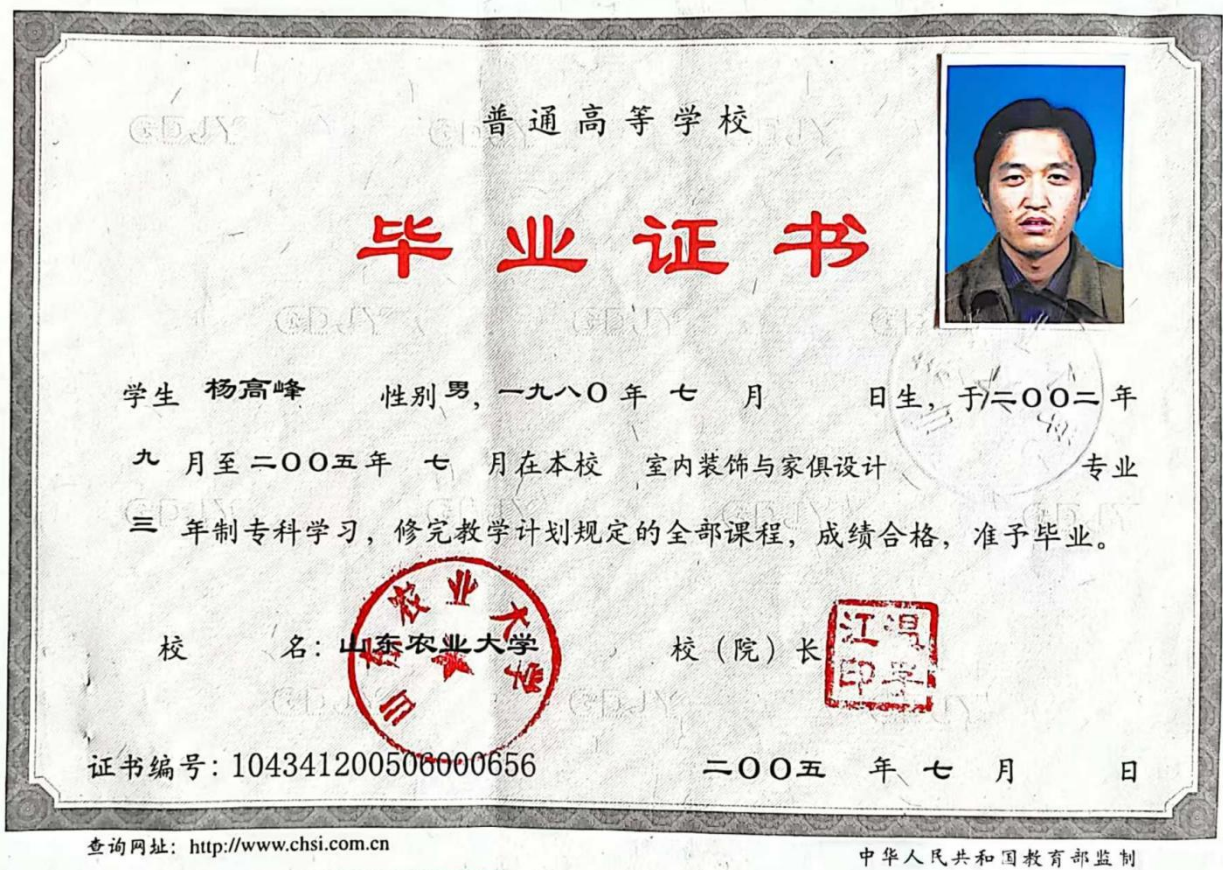 普通高等学校
毕业证书
学生 杨高峰 性别男，一九八〇年 七 月 日生，于二〇〇二年
九 月至二〇〇五年 七 月在本校 室内装饰与家俱设计 专业
三 年制专科学习，修完教学计划规定的全部课程，成绩合格，准予毕业。
山东农业大学
校 名：山东农业大学 校（院）长
江 印
证书编号：104341200506000656 二〇〇五 年 七 月 日
查询网址：http://www.chsi.com.cn
中华人民共和国教育部监制